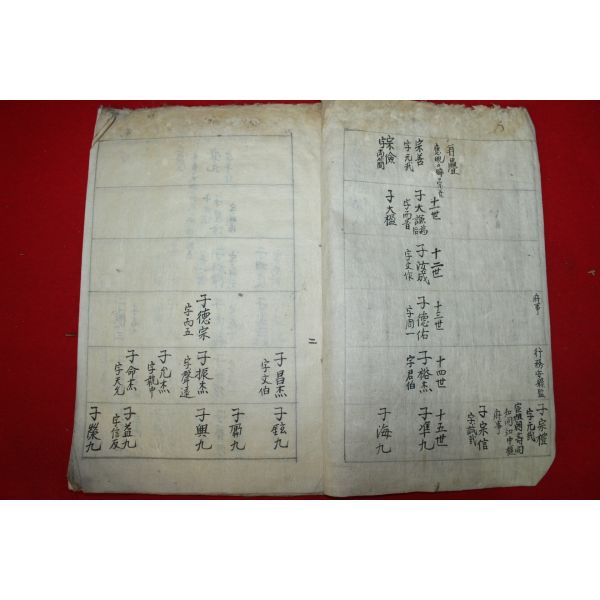 府事
行務安縣監
子宗愷
字元哉
府事
子宗信
字誠哉
宗善
字元哉
宗儉
字而簡
十一世
子大謙
字而益
子大楹
十二世
子汝成
字文作
十三世
子德佑
字周一
十四世
子格杰
字君伯
十五世
子準九
子海九
二
子昌杰
字文伯
子鉉九
子德宗
字而五
子振杰
字聲遠
子興九
子允杰
字龍中
子命杰
字天允
子益九
字信友
子榮九